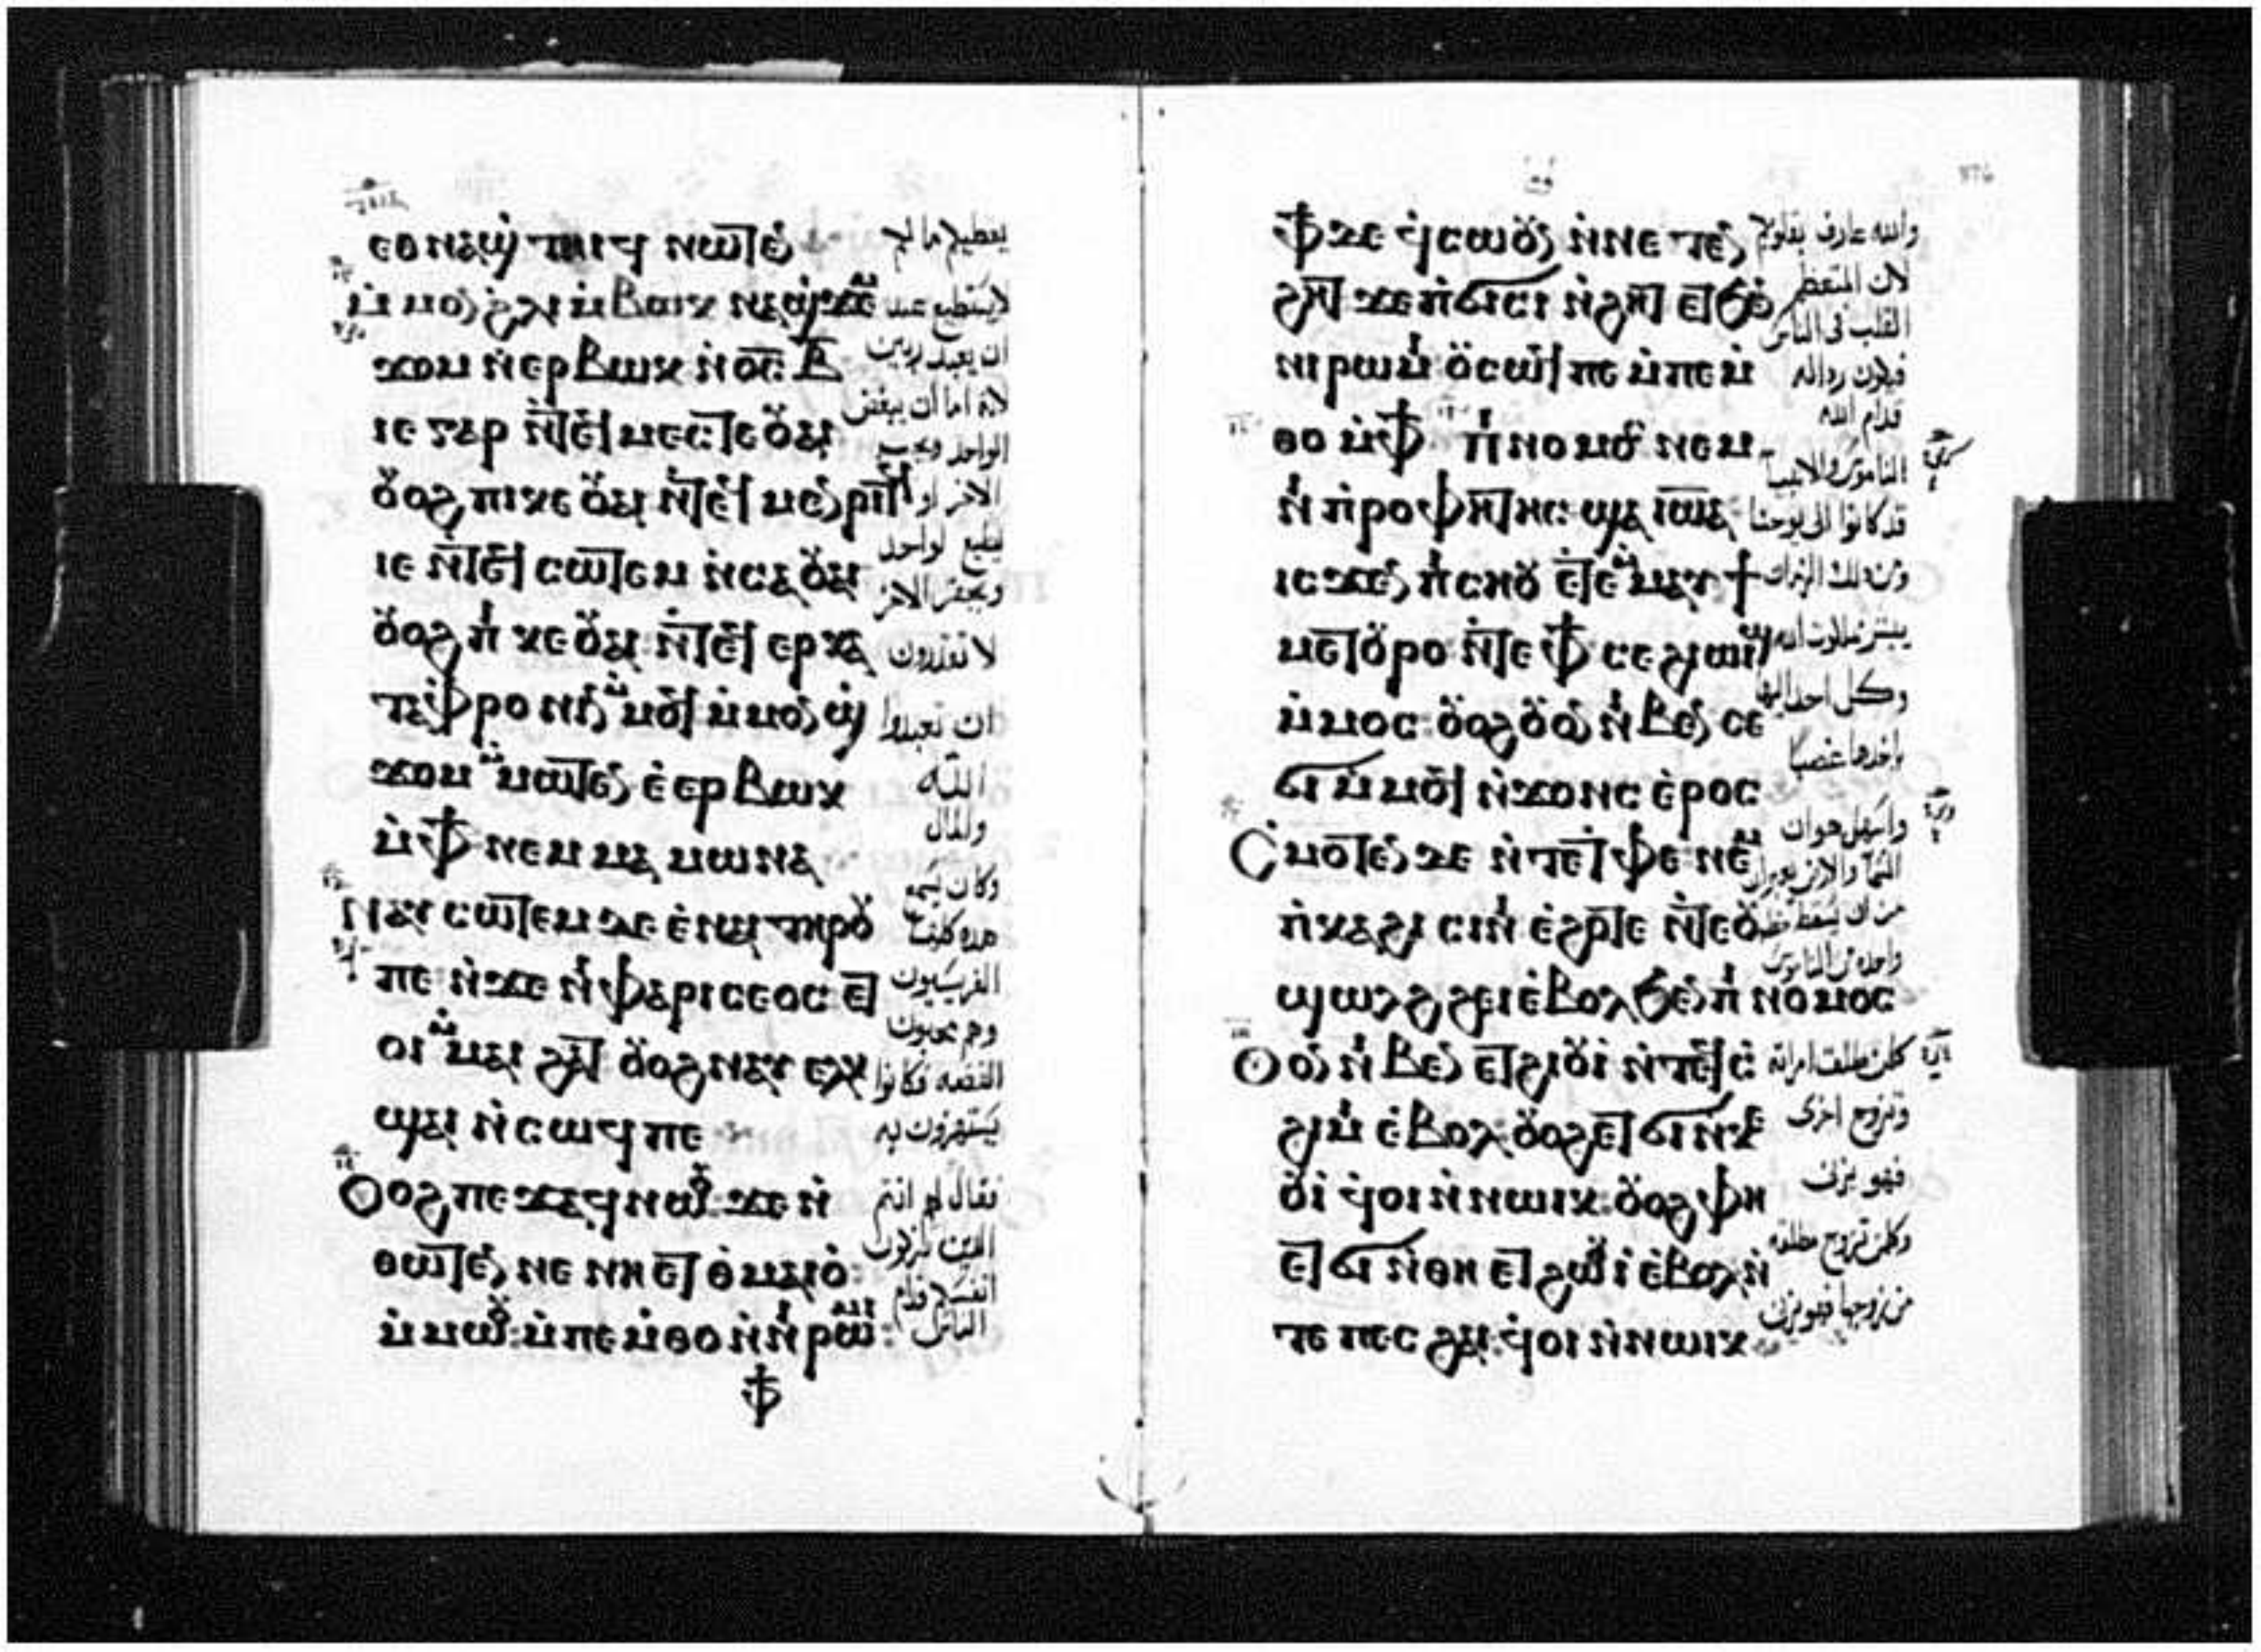 ⲉⲑⲛⲁϣ̇ ⲧⲏⲓϥ ⲛⲱⲧⲉ̄
ⲙ̇ⲙⲟ̄ ϩ̇ⲗⲓ ⲙ̇ⲃⲱⲕ ⲛⲁϣ̇ϫⲉ
ϫⲟⲙ ⲛ̇ⲉⲣⲃⲱⲕ ⲛ̇ⲟ̅ⲥ̅ ⲃ̅
ⲓⲉ ⲅⲁⲣ ⲛ̇ⲧⲉϥ ⲙⲉⲥⲧⲉ ⲟⲩⲁⲓ
ⲟⲩⲟϩ ⲡⲓⲕⲉ ⲟⲩⲁⲓ ⲛ̇ⲧⲉϥ ⲙⲉⲛⲣⲓⲧϥ
ⲓⲉ ⲛ̇ⲧⲉϥ ⲥⲱⲧⲉⲙ ⲛ̇ⲥⲁ ⲟⲩⲁⲓ
ⲟⲩⲟϩ ⲡⲓ ⲕⲉ ⲟⲩⲁⲓ ⲛ̇ⲧⲉϥ ⲉⲣⲕⲁ
ⲧⲁⲫⲣⲟⲛⲓⲛ ⲙ̇ⲙⲟϥ ⲙ̇ⲙⲟⲛ ϣ̇
ϫⲟⲙ ⲙ̇ⲙⲱⲧⲉⲛ ⲉ̇ⲉⲣⲃⲱⲕ
ⲙ̇ⲫϯ ⲛⲉⲙ ⲙⲁⲙⲱⲛⲁ
ⲛⲁⲩ ⲥⲱⲧⲉⲙ ⲇⲉ ⲉ̇ⲛⲁⲓ ⲧⲏⲣⲟⲩ
ⲡⲉ ⲛ̇ϫⲉ ⲛⲓ ⲫⲁⲣⲓⲥⲉⲟⲥ ⲉⲧ
ⲟⲓ ⲙ̇ⲙⲁⲓ ϩⲁⲧ ⲟⲩⲟϩ ⲛⲁⲩ ⲉⲗⲕ
ϣⲁⲓ ⲛ̇ⲥⲱϥ ⲡⲉ
ⲟⲩⲟϩ ⲡⲉϫⲁϥ ⲛⲱⲟⲩ ϫⲉ ⲛ̇
ⲑⲱⲧⲉⲛ ⲛⲉ ⲛⲏ ⲉⲧ ⲑⲙⲁⲓⲟ̇
ⲙ̇ⲙⲱⲟⲩ ⲙ̇ⲡⲉⲙ̇ⲑⲟ ⲛ̇ⲛⲓ ⲣⲱⲙⲓ
ⲫϯ
يعطيكم ما لكم
لا يستطيع عبد
ان يعبد ربين
لانه اما ان يبغض
الواحد ويحب
الاخر او
يطيع لواحد
ويحتقر الاخر
لا تقدرون
ان تعبدوا
الله
والمال
وكان يسمع
هذه كلها
الفريسيون
وهم محبون
الفضه فكانوا
يستهزون به
فقال لهم انتم
الذين تزكون
انفسكم قدام
الناس
ⲫϯ ⲇⲉ ϥ̇ⲥⲱⲟⲩⲛ ⲛ̇ⲛⲉⲧⲉⲛ
ϩⲏⲧ ϫⲉ ⲡ̇ϭⲓⲥⲓ ⲛ̇ϩⲏⲧ ⲉⲧ ϧⲉⲛ
ⲛⲓⲣⲱⲙⲓ ⲟⲩⲥⲱϥ ⲡⲉ ⲙ̇ⲡⲉⲙ̇
ⲑⲟ ⲙ̇ⲫϯ ⲡⲓ ⲛⲟⲙⲟⲥ ⲛⲉⲙ
ⲛⲓ ⲡ̇ⲣⲟⲫⲏⲧⲏⲥ ϣⲁ ⲓⲱⲁ
ⲓⲥϫⲉⲛ ⲡⲓ ⲥⲏⲟⲩ ⲉ̇ⲧⲉⲙ̇ⲙⲁⲩ ϯ
ⲙⲉⲧⲟⲩⲣⲟ ⲛ̇ⲧⲉ ⲫϯ ⲥⲉϩⲓϣⲉⲛⲛⲟⲩϥⲓ
ⲙ̇ⲙⲟⲥ ⲟⲩⲟϩ ⲟⲩⲟⲛ ⲛⲓⲃⲉⲛ ⲥⲉ
ϭⲓ ⲙ̇ⲙⲟϥ ⲛ̇ϫⲟⲛⲥ ⲉ̇ⲣⲟⲥ
ⲥ̇ⲙⲟⲧⲉⲛ ⲇⲉ ⲛ̇ⲧⲉ ⲧ̇ⲫⲉ ⲛⲉⲙ
ⲡ̇ⲕⲁϩⲓ ⲥⲓⲛⲓ ⲉ̇ϩⲣⲟⲧⲉ ⲛ̇ⲧⲉ ⲟⲩ
ϣⲱⲗϩ ϩⲉⲓ ⲉ̇ⲃⲟⲗ ϧⲉⲛ ⲡⲓ ⲛⲟⲙⲟⲥ
ⲟⲩⲟⲛ ⲛⲓⲃⲉⲛ ⲉⲧϩⲓⲟⲩⲓ ⲛ̇ⲧⲉϥⲥ̇
ϩⲓⲙⲓ ⲉ̇ⲃⲟⲗ ⲟⲩⲟϩ ⲉⲧϭⲓ ⲛ̇ⲕⲉ
ⲟⲩⲓ̇ ϥ̇ⲟⲓ ⲛ̇ⲛⲱⲓⲕ ⲟⲩⲟϩ ⲫⲏ
ⲉⲧϭⲓ ⲛ̇ⲑⲏ ⲉⲧϩⲱⲟⲩⲓ̇ ⲉ̇ⲃⲟⲗ ⲛ̇
ⲧⲉ ⲡⲉⲥ ϩⲁⲓ ϥ̇ⲟⲓ ⲛ̇ⲛⲱⲓⲕ
والله عارف بقلوبكم
لان المتعظم
القلب في الناس
فيكون رذاله
قدام الله
الناموس والانبيا
قد كانوا الى يوحنا
ومن ذلك الزمان
يبشر بملكوت الله
وكل احد اليها
ياخذها غصبًا
واسهل هو ان
السما والارض يعبران
من ان يسقط خط
واحد من الناموس
كل من طلق امراته
وتزوج اخرى
فهو يزني
وكل من تزوج مطلقه
من زوجها فهو يزني